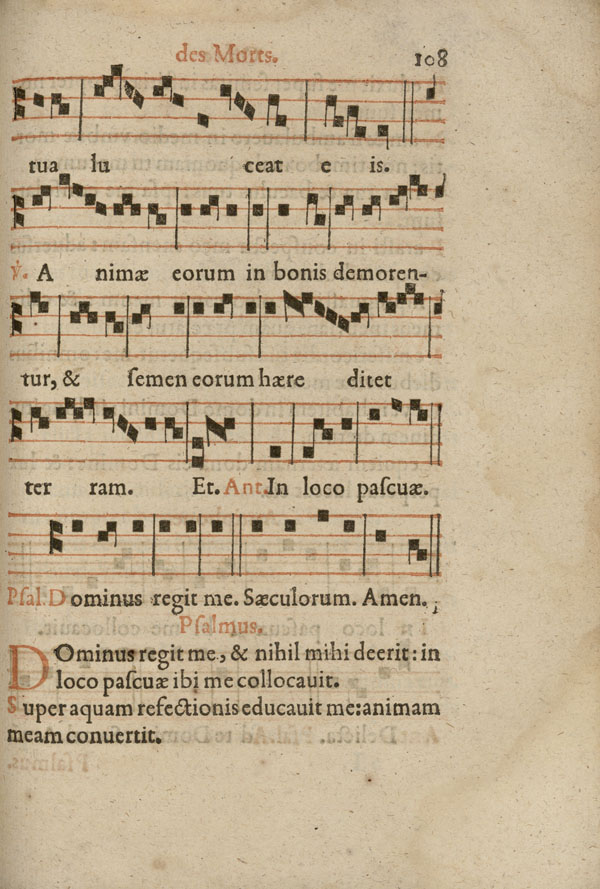 des Morts. 108
tua lu ceat e is.
℣. A nimæ eorum in bonis demoren-
tur, & ſemen eorum hære ditet
ter ram. Et. Ant. In loco paſcuæ.
Pſal. Dominus regit me. Sæculorum. Amen.
Pſalmus.
DOminus regit me, & nihil mihi deerit: in
loco paſcuæ ibi me collocauit.
Super aquam refectionis educauit me: animam
meam conuertit.